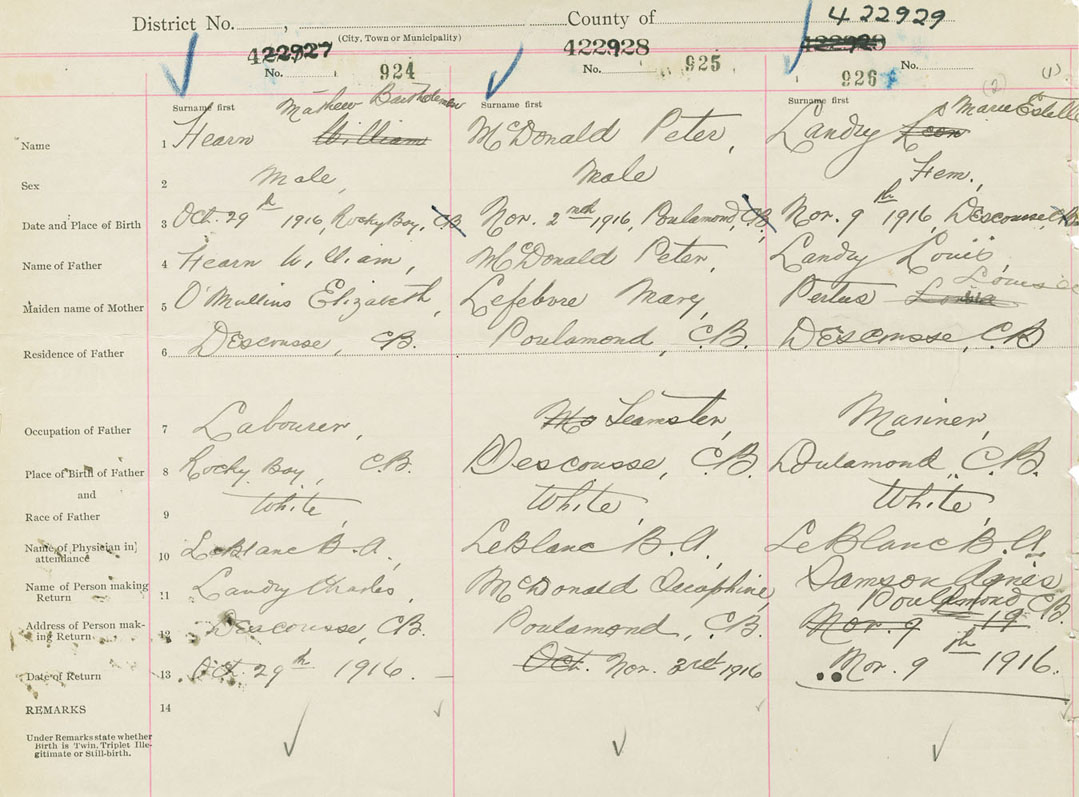 District No. , County of 422929
(City, Town or Municipality)
422927 422928 422929
No. 924 No. 925 No. 926 (2) (1)
Surname first Surname first Surname first
Mathew Bartholemew Marie Estelle
Name 1 Hearn William McDonald Peter, Landry Leon
Sex 2 Male, Male Fem.,
Date and Place of Birth 3 Oct. 29th 1916, Rocky Bay, CB Nov. 2nd 1916, Poulamond, CB, Nov. 9th 1916, Descousse,
Name of Father 4 Hearn William, McDonald Peter, Landry Louis,
Louis
Maiden name of Mother 5 O'Mullins Elizabeth, Lefebvre Mary, Pertus
Residence of Father 6 Descousse, CB. Poulamond, C.B. Descousse, CB
Occupation of Father 7 Labourer, Mc Teamster, Mariner,
Place of Birth of Father 8 Rocky Bay, CB. Descousse, CB. Dulamond, C.B.
and
Race of Father 9 White, White, White,
Name of Physician in attendance 10 LeBlanc B.A. LeBlanc B.A. LeBlanc B.A.
Name of Person making Return 11 Landry Charles, McDonald Samson Agnes
Poulamond CB.
Address of Person making Return 12 Descousse, CB. Poulamond, C.B. Nov. 9 19
Date of Return 13 Oct. 29th 1916. Oct. Nov. 2nd 1916 Nov. 9th 1916.
REMARKS 14
Under Remarks state whether
Birth is Twin, Triplet Ille-
gitimate or Still-birth.